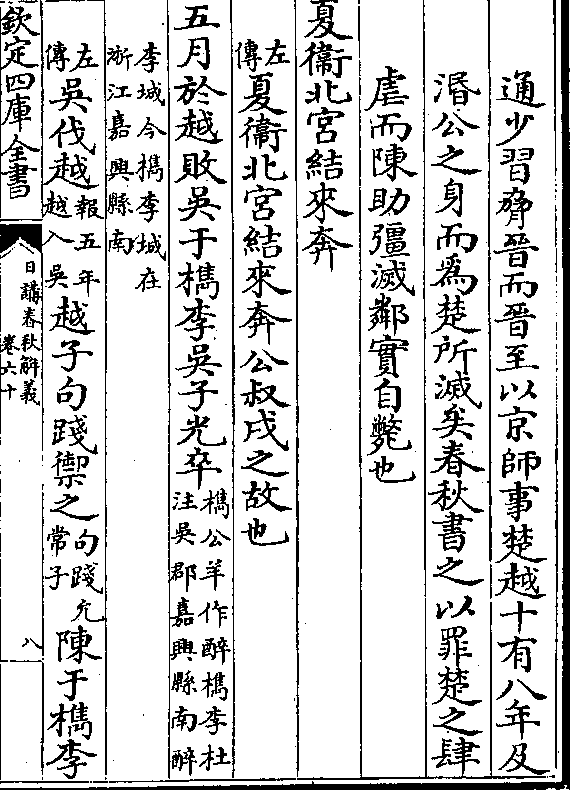 通少習脅晉而晉至以京師事楚越十有八年及
湣公之身而爲楚所滅矣春秋書之以罪楚之肆
虐而陳助彊滅鄰實自斃也
夏衞北宫結來奔
左傳夏衞北宫結來奔公叔戌之故也
五月於越敗吳于檇李吳子光卒檇公羊作醉檇李杜注吳郡嘉興縣南醉
李城今檇李城在浙江嘉興縣南
左傳吳伐越報五年越入吳越子句踐禦之句踐允常子陳于檇李
欽定四庫全書
日講春秋解義
卷六十
八